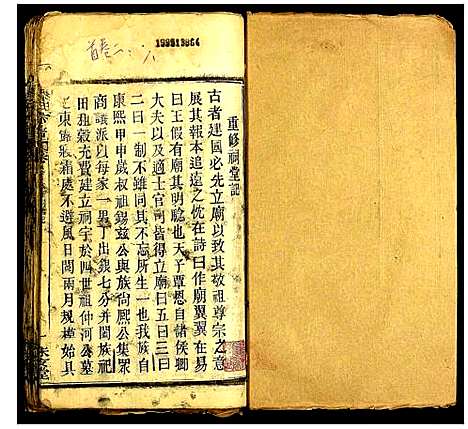 首卷二、六
199513964
重修祠堂記
古者建國必先立廟以致其敬祖尊宗之意
展其報本追遠之忱在詩曰作廟翼翼在易
曰王假有廟其明騐也天子覃恩自諸侯卿
大夫以及適士官司皆得立廟曰五曰三曰
二曰一制不雖同其不忘所生一也我族自
康熙甲申歲叔祖錫兹公與族尚熙公集眾
商議派以每家一男丁出銀七分并闔族祀
田租穀充費建立祠宇於四世祖仲河公墓
東 霜處不避風日閱兩月規模始具